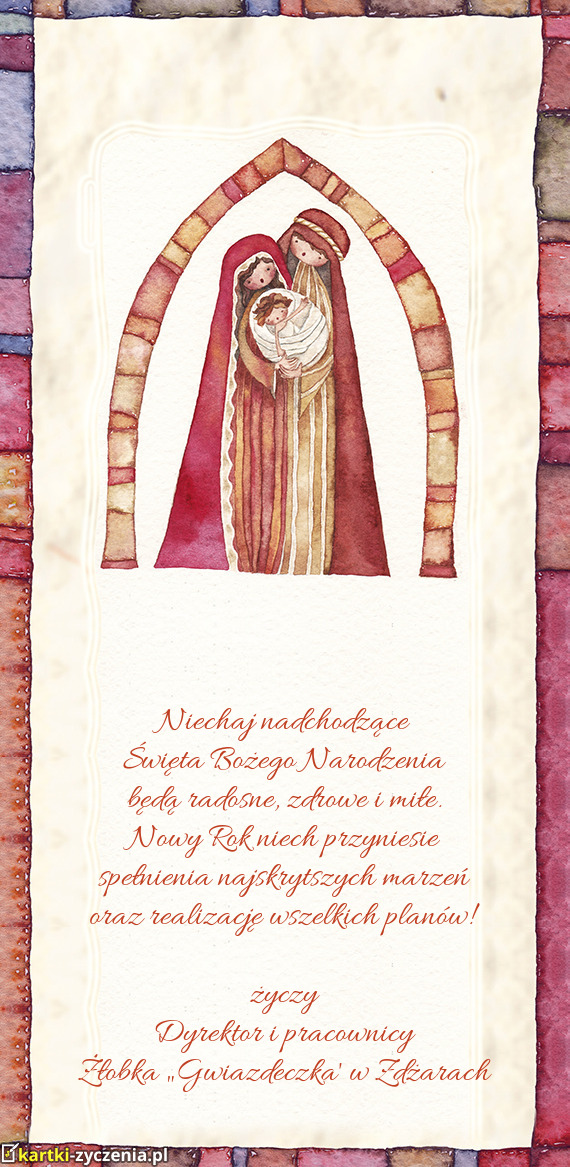 Niechaj nadchodzące
Święta Bożego Narodzenia
będą radosne, zdrowe i miłe.
Nowy Rok niech przyniesie
spełnienia najskrytszych marzeń
oraz realizację wszelkich planów!
życzy
Dyrektor i pracownicy
Żłobka „Gwiazdeczka' w Zdżarach
kartki-zyczenia.pl